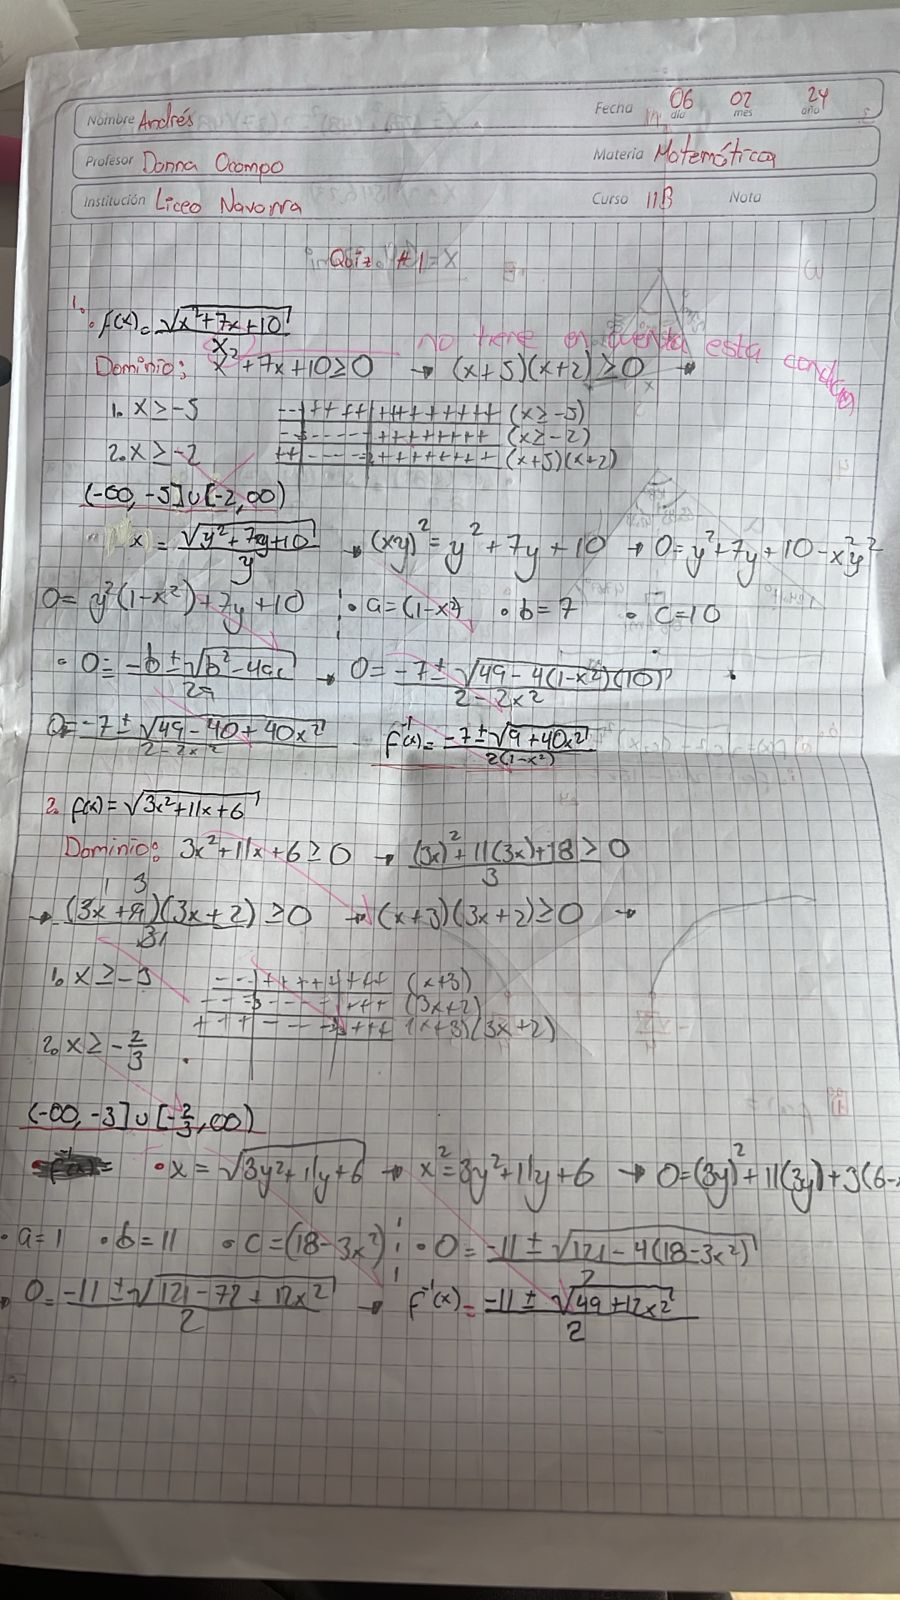 Nombre Andrés Fecha 06 02 24
día mes año
Profesor Danna Ocampo Materia Matemática
Institución Liceo Navarra Curso 11B Nota
Quiz #1
1. f(x) = √(x²+7x+10) / x
no tiene en cuenta esta condición
Dominio: x²+7x+10≥0 → (x+5)(x+2)≥0 →
1. x ≥ -5 --|++++|+++++++++ (x≥-5)
--5----|++++++++ (x≥-2)
2. x ≥ -2 ++|----2++++++++ (x+5)(x+2)
(-∞, -5]∪[-2, ∞)
x = √(y²+7y+10) / y → (xy)² = y²+7y+10 → 0=y²+7y+10-x²y²
0= y²(1-x²)+7y+10 • a=(1-x²) • b=7 • c=10
• 0= (-b±√(b²-4ac)) / 2a → 0= (-7±√(49-4(1-x²)(10))) / (2-2x²)
0= (-7±√(49-40+40x²)) / (2-2x²) f⁻¹(x)= (-7±√(9+40x²)) / (2(1-x²))
2. f(x)=√(3x²+11x+6)
Dominio: 3x²+11x+6≥0 → ((3x)²+11(3x)+18) / 3 ≥0
→ (3x+9)(3x+2) / 3 ≥0 → (x+3)(3x+2)≥0 →
1. x ≥ -3 ---|+++++++ (x+3)
---3----|+++ (3x+2)
+++|----+++ (x+3)(3x+2)
2. x ≥ -2/3
(-∞, -3]∪[-2/3, ∞)
• x = √(3y²+11y+6) → x²=3y²+11y+6 → 0=(3y)²+11(3y)+3(6-
• a=1 • b=11 • c=(18-3x²) • 0= (-11±√(121-4(18-3x²))) / 2
• 0= (-11±√(121-72+12x²)) / 2 → f⁻¹(x)= (-11±√(49+12x²)) / 2